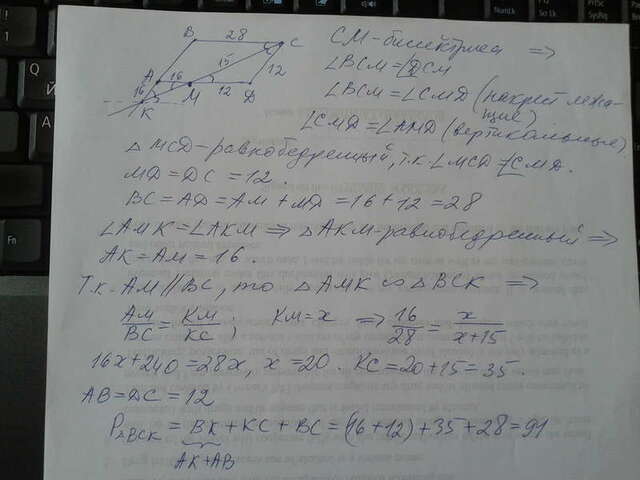 B 28 C
15
A 16 12
16 M 12 D
K
CM-биссектриса =>
∠BCM = ∠DCM
∠BCM = ∠CMD (накрест лежа-
щие)
∠CMD = ∠AMD (вертикальные)
△ MCD-равнобедренный, т.к. ∠MCD = ∠CMD.
MD = DC = 12.
BC = AD = AM + MD = 16 + 12 = 28
∠AMK = ∠AKM => △AKM-равнобедренный =>
AK = AM = 16.
Т.к. AM // BC, то △AMK ∾ △BCK =>
AM/BC = KM/KC ; KM = x => 16/28 = x/(x+15)
16x + 240 = 28x, x = 20. KC = 20 + 15 = 35.
AB = DC = 12
P△BCK = BK + KC + BC = (16 + 12) + 35 + 28 = 91
AK + AB